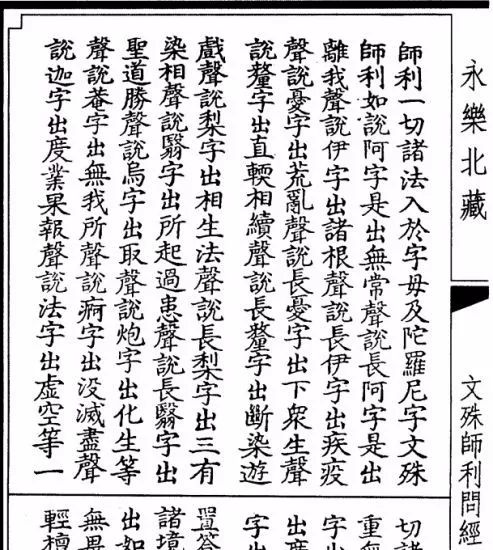 永樂北藏
文殊師利問經
師利一切諸法入於字母及陀羅尼字文殊
師利如說阿字是出無常聲說長阿字是出
離我聲說伊字出諸根聲說長伊字出疾疫
聲說憂字出荒亂聲說長憂字出下衆生聲
說釐字出直輭相續聲說長釐字出斷染遊
戲聲說梨字出相生法聲說長梨字出三有
染相聲說翳字出所起過患聲說長翳字出
聖道勝聲說烏字出取聲說炮字出化生等
聲說菴字出無我所聲說痾字出没滅盡聲
說迦字出度業果報聲說法字出虛空等一
切諸
重無
字出
出
字出
答
諸境
出如
無畏
輕檀